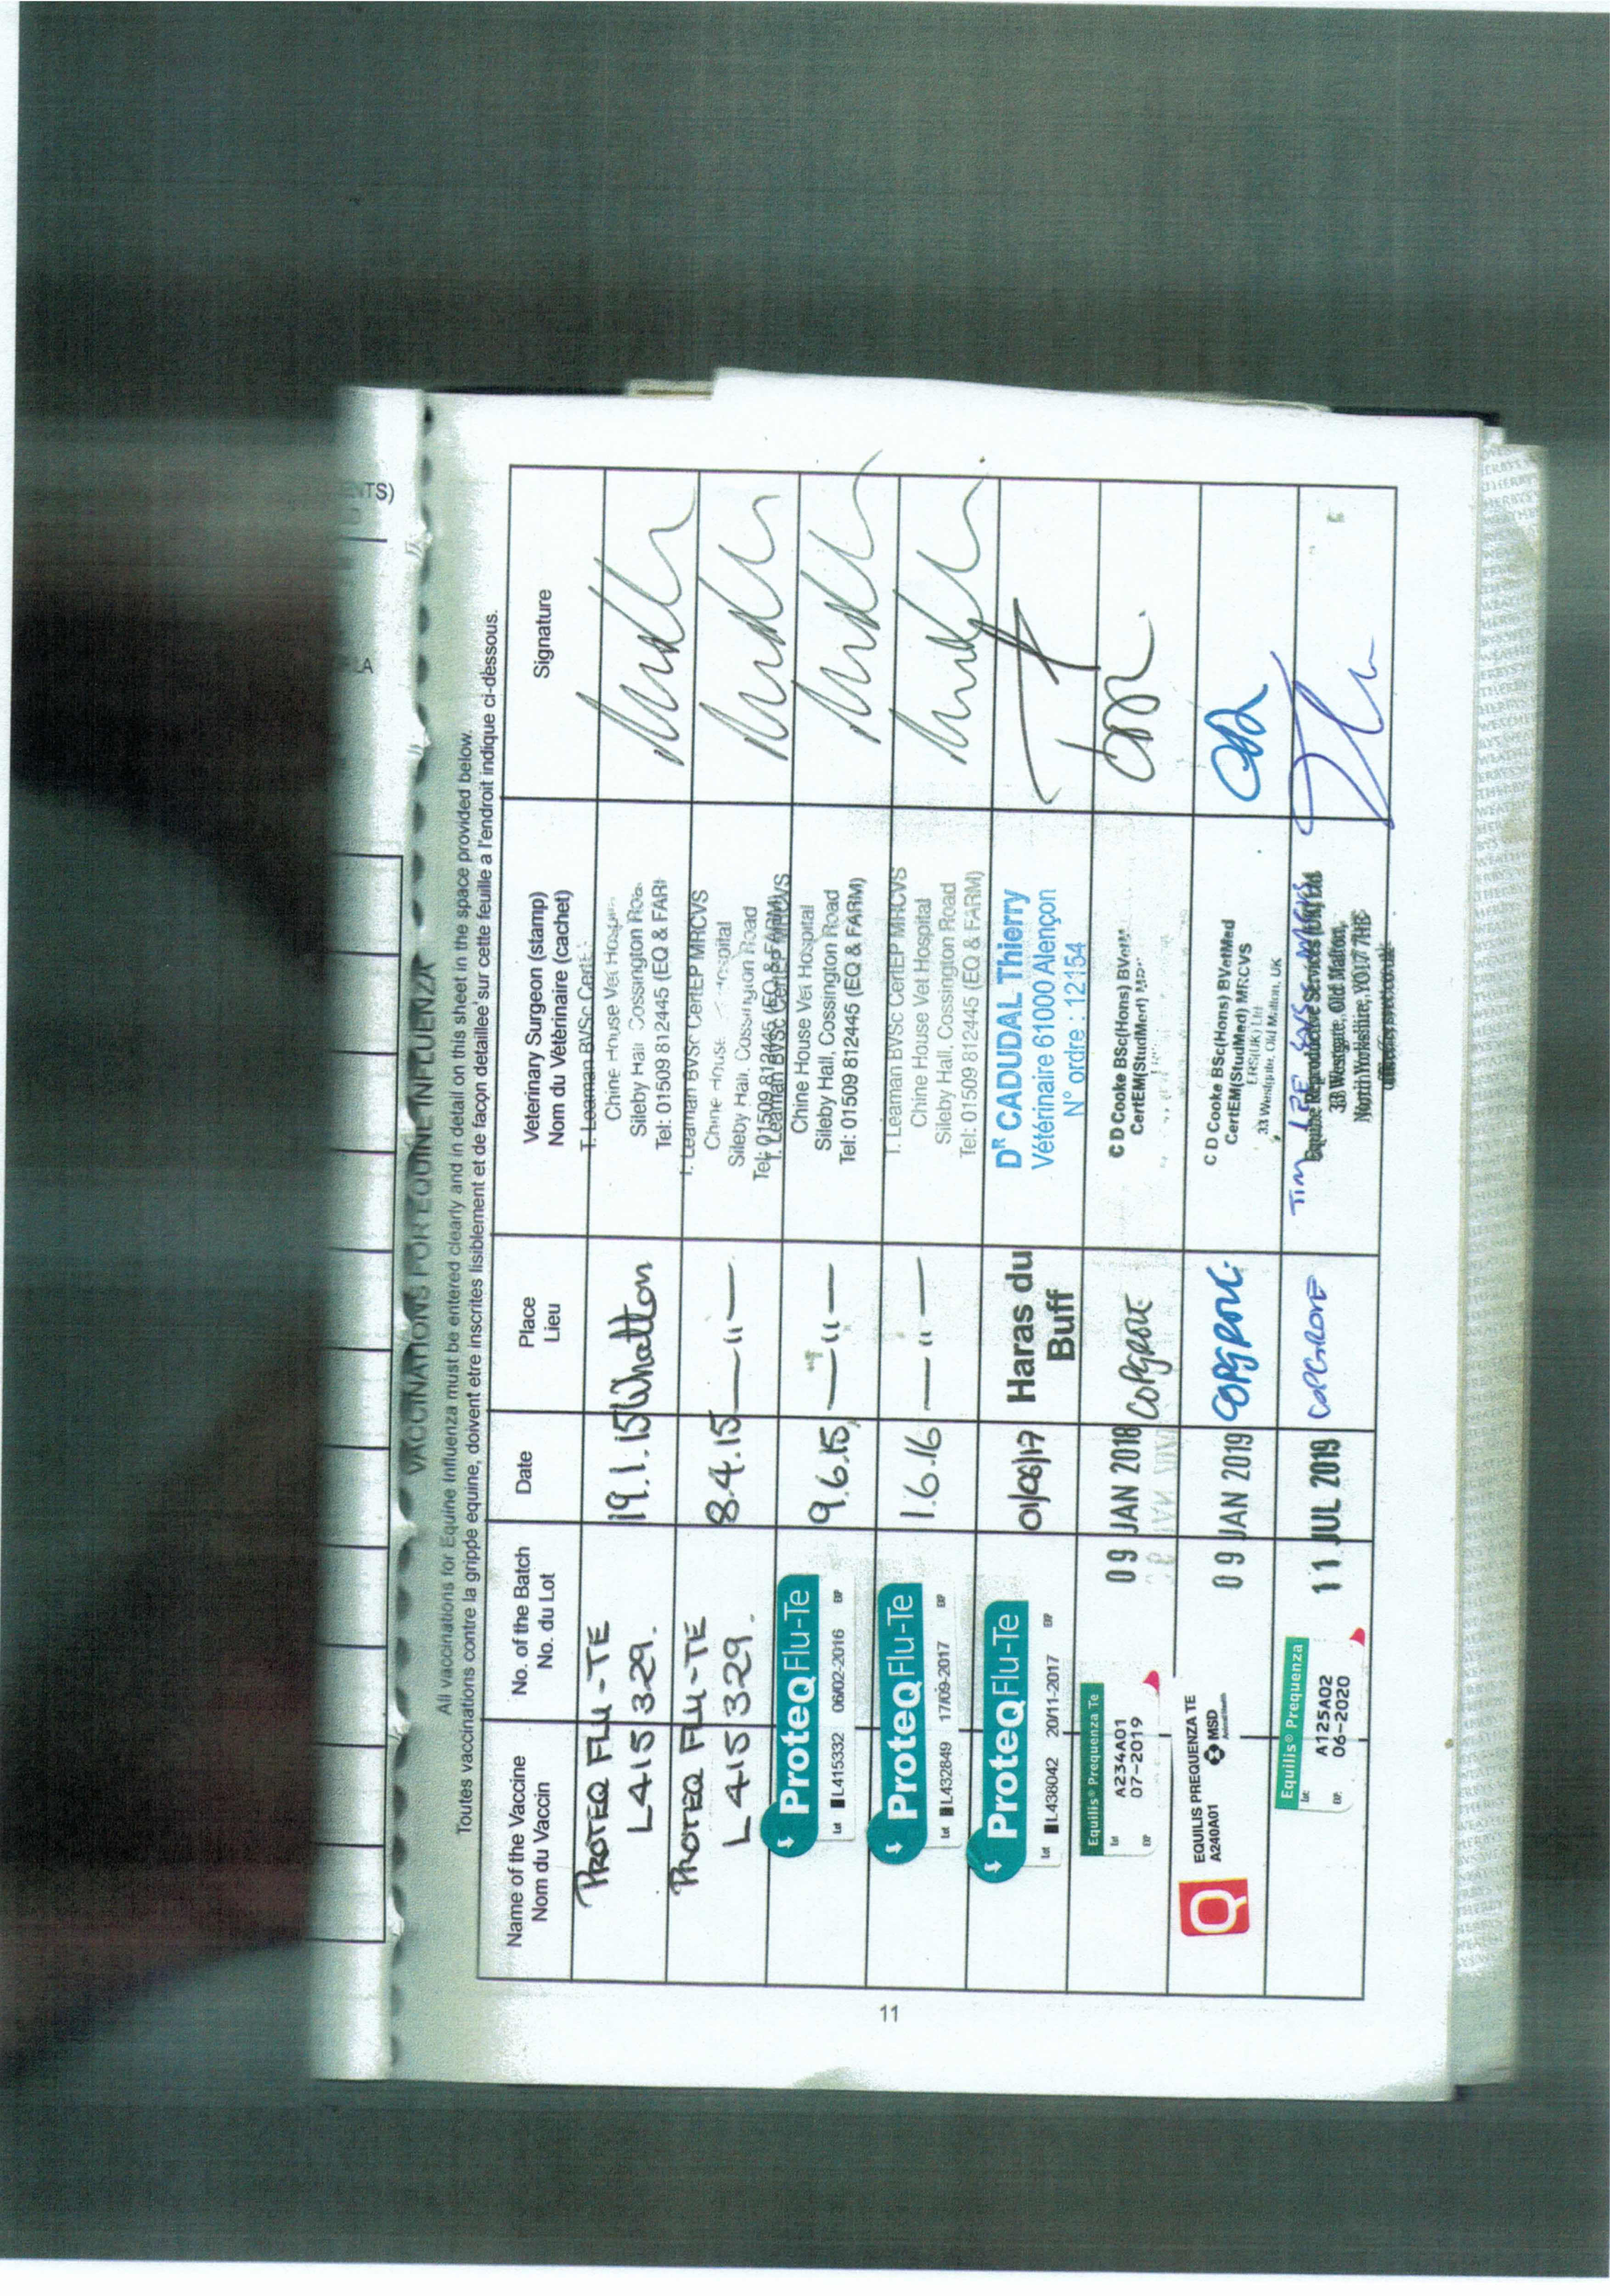 ENTS)
LA
VACCINATIONS FOR EQUINE INFLUENZA
All vaccinations for Equine Influenza must be entered clearly and in detail on this sheet in the space provided below.
Toutes vaccinations contre la grippe equine, doivent etre inscrites lisiblement et de façon detaillee' sur cette feuille a l'endroit indique ci-dessous.
Name of the Vaccine
Nom du Vaccin
No. of the Batch
No. du Lot
Date
Place
Lieu
Veterinary Surgeon (stamp)
Nom du Vétèrinaire (cachet)
Signature
PROTEQ FLU-TE
L415329.
19.1.15
Whatton
T. Leaman BVSc CertE
Chine House Vet Hospi
Sileby Hall Cossington Roa
Tel: 01509 812445 (EQ & FAR
PROTEQ FLU-TE
L415329.
8.4.15
—11—
T. Leaman BVSc CertEP MRCVS
Chine House Hospital
Sileby Hall, Cossington Road
Tel: 01509 812445 (EQ & FARM)
ProteQ Flu-Te
Lot L415332 06/02-2016 EXP
9.6.15
—11—
T. Leaman BVSc CertEP MRCVS
Chine House Vet Hospital
Sileby Hall, Cossington Road
Tel: 01509 812445 (EQ & FARM)
ProteQ Flu-Te
Lot L432849 17/09-2017 EXP
1.6.16
—11—
T. Leaman BVSc CertEP MRCVS
Chine House Vet Hospital
Sileby Hall, Cossington Road
Tel: 01509 812445 (EQ & FARM)
ProteQ Flu-Te
Lot L438042 20/11-2017 EXP
01/06/17
Haras du
Buff
DR CADUDAL Thierry
Vétérinaire 61000 Alençon
N° ordre : 12154
Equilis® Prequenza Te
lot A234A01
EXP 07-2019
09 JAN 2018
COPGROVE
C D Cooke BSc(Hons) BVetM
CertEM(StudMed)
EQUILIS PREQUENZA TE
A240A01 MSD
Animal Health
09 JAN 2019
COPGROVE
C D Cooke BSc(Hons) BVetMed
CertEM(StudMed) MRCVS
ERS(UK) Ltd
33 Westgate, Old Malton, UK
Equilis® Prequenza
lot: A125A02
EXP. 06-2020
11 JUL 2019
COPGROVE
TIM LEE MRCVS
Equine Reproductive Services (UK) Ltd
33 Westgate, Old Malton,
North Yorkshire, YO17 7HE
11